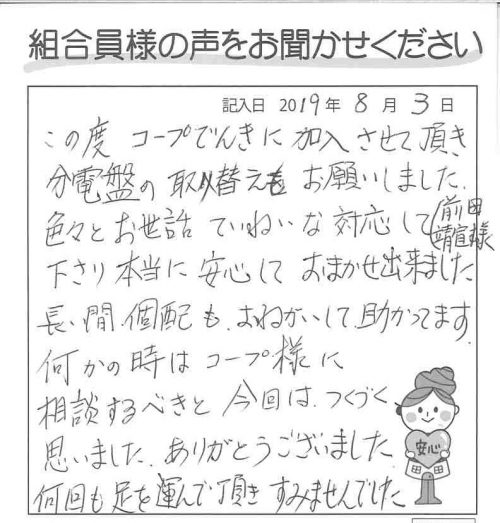 組合員様の声をお聞かせください
記入日 2019年 8月 3日
この度 コープでんきに 加入させて頂き
分電盤の取り替えも お願いしました.
色々とお世話 ていねいな対応して(前田靖宣様)
下さり本当に 安心して おまかせ出来ました
長い間 個配も、おねがいして助かってます
何かの時は コープ様に
相談するべきと 今回は、つくづく
思いました、ありがとうございました
何回も足を運んで頂き すみませんでした
安心